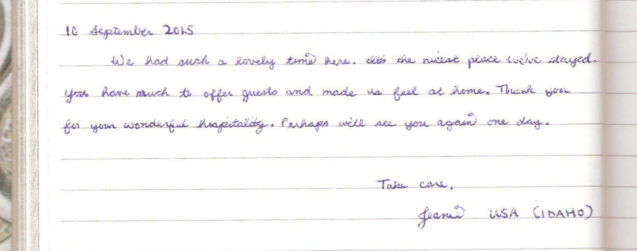 10 September 2015
We had such a lovely time here. It's the nicest place we've stayed.
You have much to offer guests and made us feel at home. Thank you
for your wonderful hospitality. Perhaps will see you again one day.
Take care,
Jeanie USA (IDAHO)